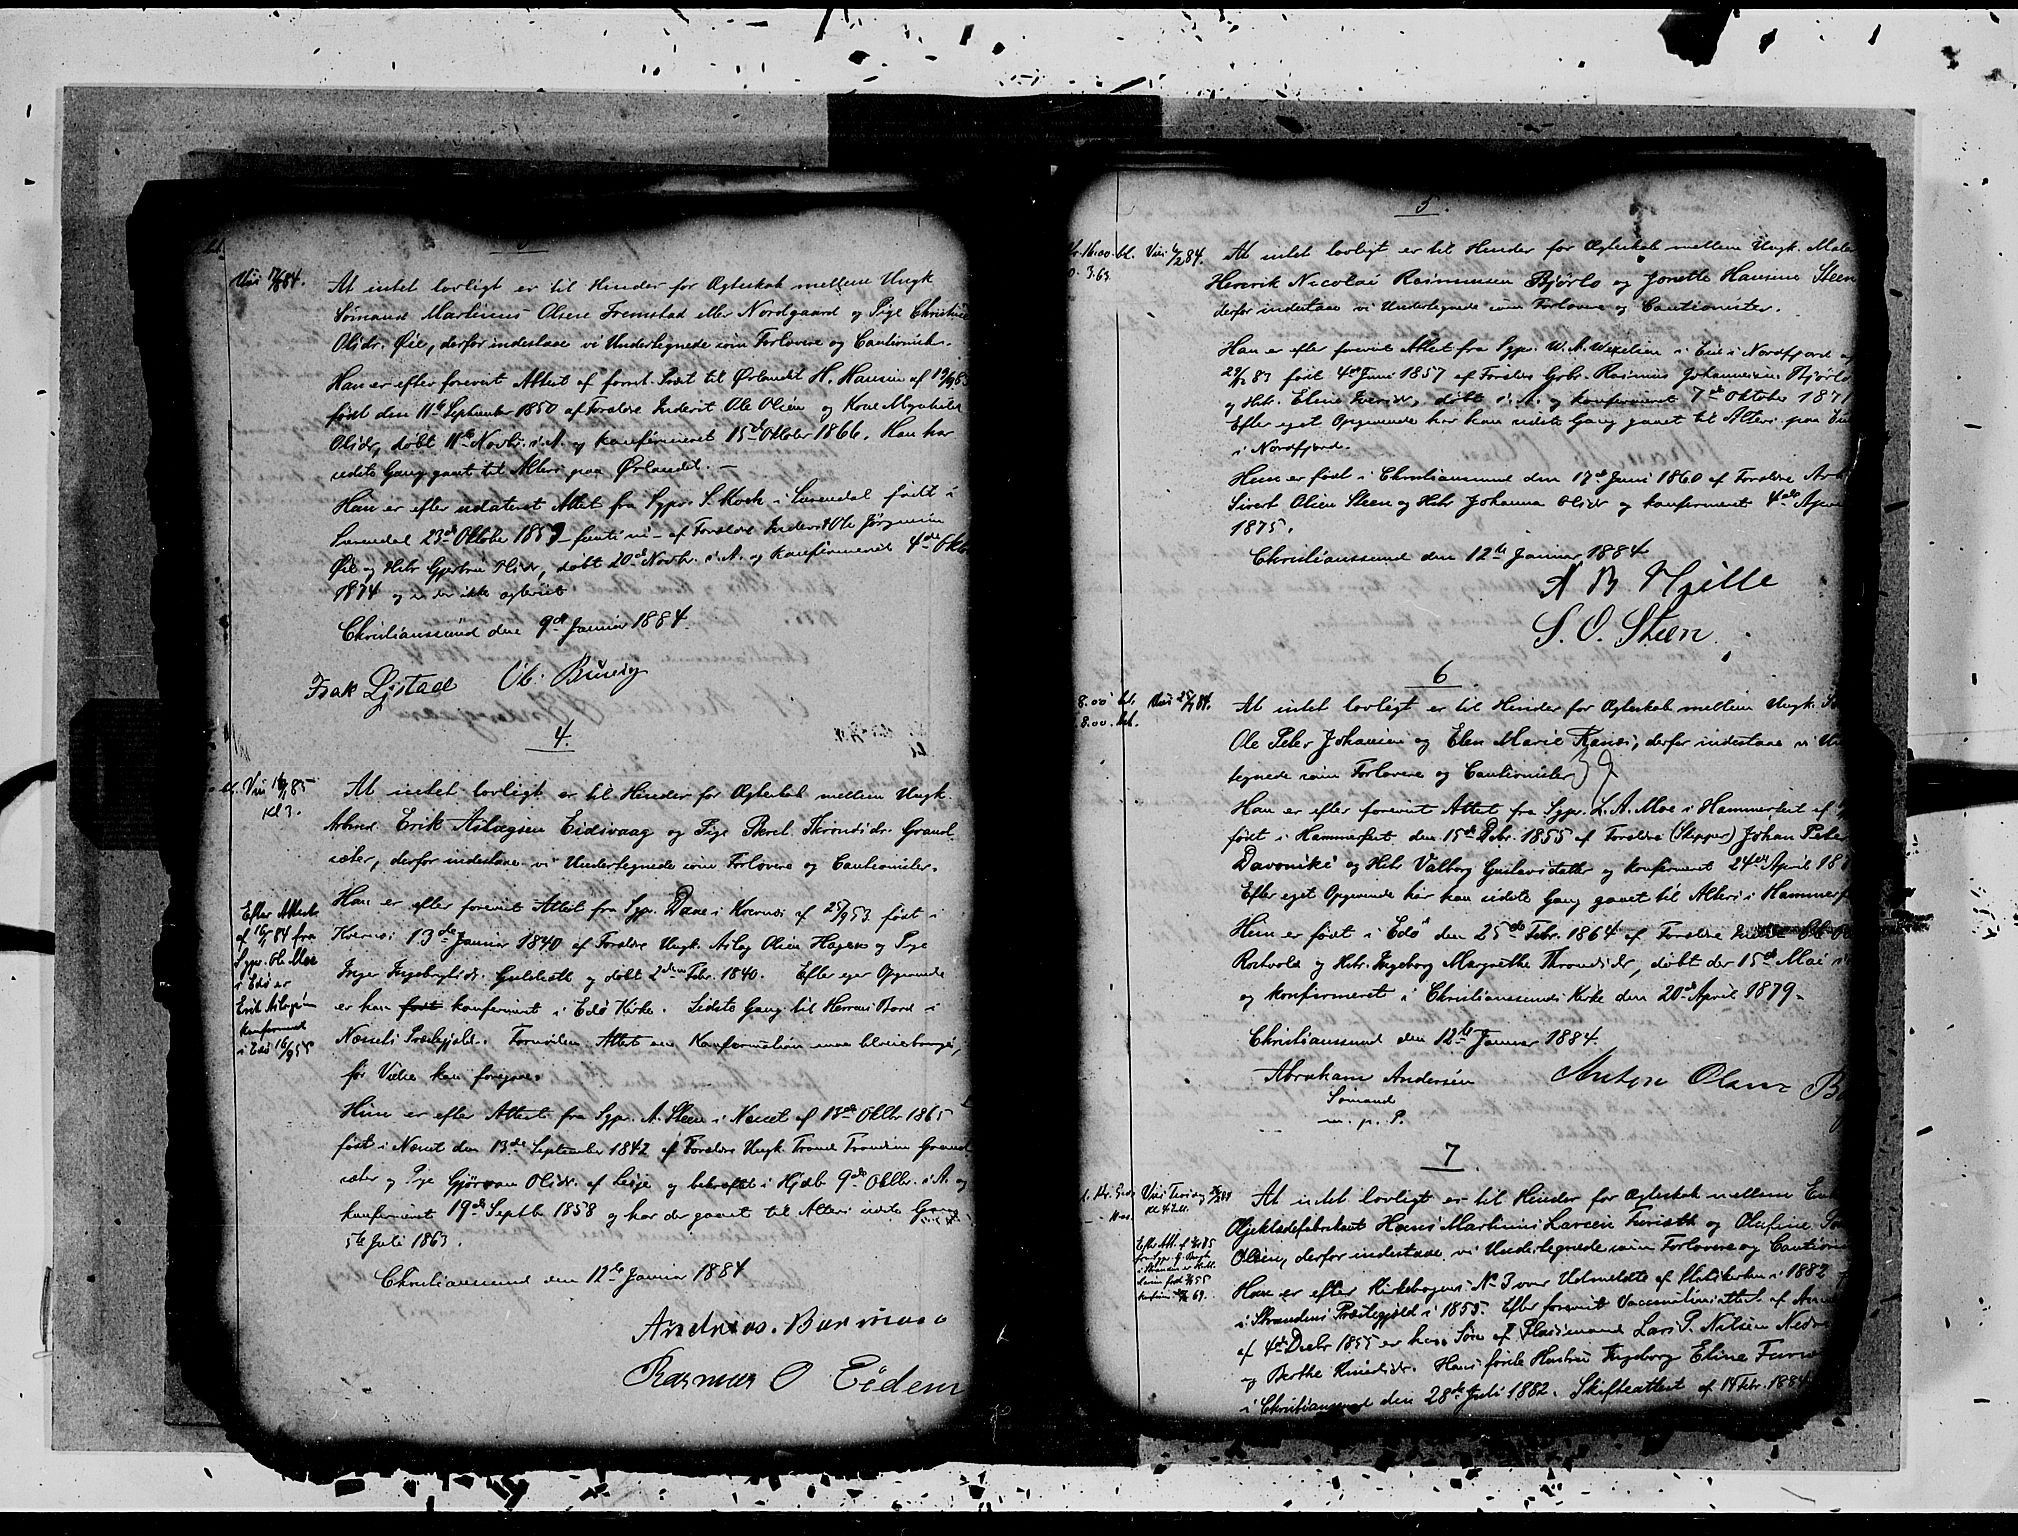 3
Viet 17/2 84.
At intet lovligt er til Hinder for Ægteskab mellem Ungk.
Sømand Martinus Olsen Fremstad eller Nordgaard og Pige Christine
Olsdr. Øie, derfor indestaae vi Undertegnede som Forlovere og Cautionister.
Han er efter forevist Attest af forrt. Præst til Ørlandet H. Hansen af 19/
født den 11te September 1850 af Forældre Inderst Ole Olsen og Kone
Olsdr., døbt 11te Novbr. s. A. og konfirmeret 15de Oktober 1866. Han har
sidste Gang gaaet til Alters paa Ørlandet. —
Hun er efter udateret Attest fra Sgpr. S. Koch i Surendal født i
Surendal 23de Oktober 1859 – femti ni – af Forældre Inderst Ole Jørgensen
Øie og Hstr. Gjertru Olsdr., døbt 20de Novbr. s. A. og konfirmeret 4de Oktbr.
1874 og er der ikke
Christianssund den 9de Januar 1884.
Isak Løstad Ol.
4.
Viet 85
Kl 3.
At intet lovligt er til Hinder for Ægteskab mellem Ungk.
Arbmd. Erik Aslagsen Eidsvaag og Pige Beret Thronsdr. Grand-
sæter, derfor indestaae vi Undertegnede som Forlovere og Cautionister.
Han er efter forevist Attest fra Sgpr. Daae i Kvernes af 25/9 53 født i
Kvernes 13de Januar 1840 af Forældre Ungk. Aslag Olsen Hagen og Pige
Inger Ingebrigtsdr. og døbt 2den Febr. 1840. Efter eget Opgivende
er han født konfirmert i Edø Kirke. Sidste Gang til Herrens Bord i
Nessets Præstegjeld. Forinden Attest om Konfirmation maa tilveiebringes,
før Vielse kan foregaae.
Efter Attest
af 16/1 84 fra
Sgpr. Ole Moe
i Edø er
Erik Aslagsen
konfirmeret
i Edø 16/9 55
Hun er efter Attest fra Sgpr. A. Steen i Nesset af 13de Oktbr 1865
født i Nesset den 13de September 1842 af Forældre Ungk. Trond Trondsen Grand-
sæter og Pige Gjøran Olsdr. af Lisje og bekræftet i Hjdb. 9de Oktbr. s. A. og
konfirmeret 19de Septbr 1858 og har der gaaet til Alters sidste Gang
5te Juli 1863.
Christianssund den 12te Januar 1884
Andreas.
Rasmus O Eidem
5.
Viet 1/2 84.
At intet lovligt er til Hinder for Ægteskab mellem Ungk. Maler
Henrik Nicolai Rasmussen Bjørlo og Jonette Hansine Steen
derfor indestaae vi Undertegnede som Forlovere og Cautionister.
Han er efter forevist Attest fra Sgpr. W. A. Wexelsen i Eid i Nordfjord af
29/12 83 født 4de Juni 1857 af Forældre Gbr. Rasmus Johannesen Hjørlo
og Hstr. Eline Iversdr., døbt s. A. og konfirmeret 7de Oktober 1871
Efter eget Opgivende har han sidste Gang gaaet til Alters paa Eid
i Nordfjord.
Hun er født i Christianssund den 17de Juni 1860 af Forældre Arb.
Sivert Olsen Steen og Hstr. Johanna Olsdr og konfirmeret 4de April
1875.
Christianssund den 12te Januar 1884
A B Hjille
S. O. Steen
6
8.00 bet.
8.00. bet.
Viet 25/1 84.
At intet lovligt er til Hinder for Ægteskab mellem Ungk.
Ole Peter Johansen og Elen Marie Ranes, derfor indestaae vi Un
tegnede som Forlovere og Cautionister
Han er efter forevist Attest fra Sgpr. L. A. Moe i Hammerfest af
født i Hammerfest den 15de Debr. 1855 af Forældre (Skipper) Johan Peter
og Hstr. Valborg Gustavsdatter og konfirmeret 24de April 18
Efter eget Opgivende har han sidste Gang gaaet til Alters i Hammerf
Hun er født i Edø den 25de Febr. 1864 af Forældre
Rostvold og Hstr. Ingeborg Margrethe Thronsdr, døbt der 15de Mai s
og konfirmeret i Christianssunds Kirke den 20de April 1879.
Christianssund den 12te Januar 1884.
Abraham Andersen
Sømand
m. p. P.
Anton Olsen B
7
At intet lovligt er til Hinder for Ægteskab mellem Enk.
Oljeklædefabrikant Hans Martinus Larsen Furseth og Olufine
Olsen, derfor indestaae vi Undertegnede som Forlovere og Cautioni
Han er efter Kirkebogens No 3 over Udmeldte af Statskirken i 1882
i Strandens Præstegjeld i 1855. Efter forevist Vaccinationsattest af
af 4de Decbr 1855 er han Søn af Pladsmand Lars P. Nilsen Nedre
og Berthe Knudsdr. Hans første Hustru Ingeborg Eline
i Christianssund den 28de Juli 1882. Skifteattest af 14 Febr. 1884